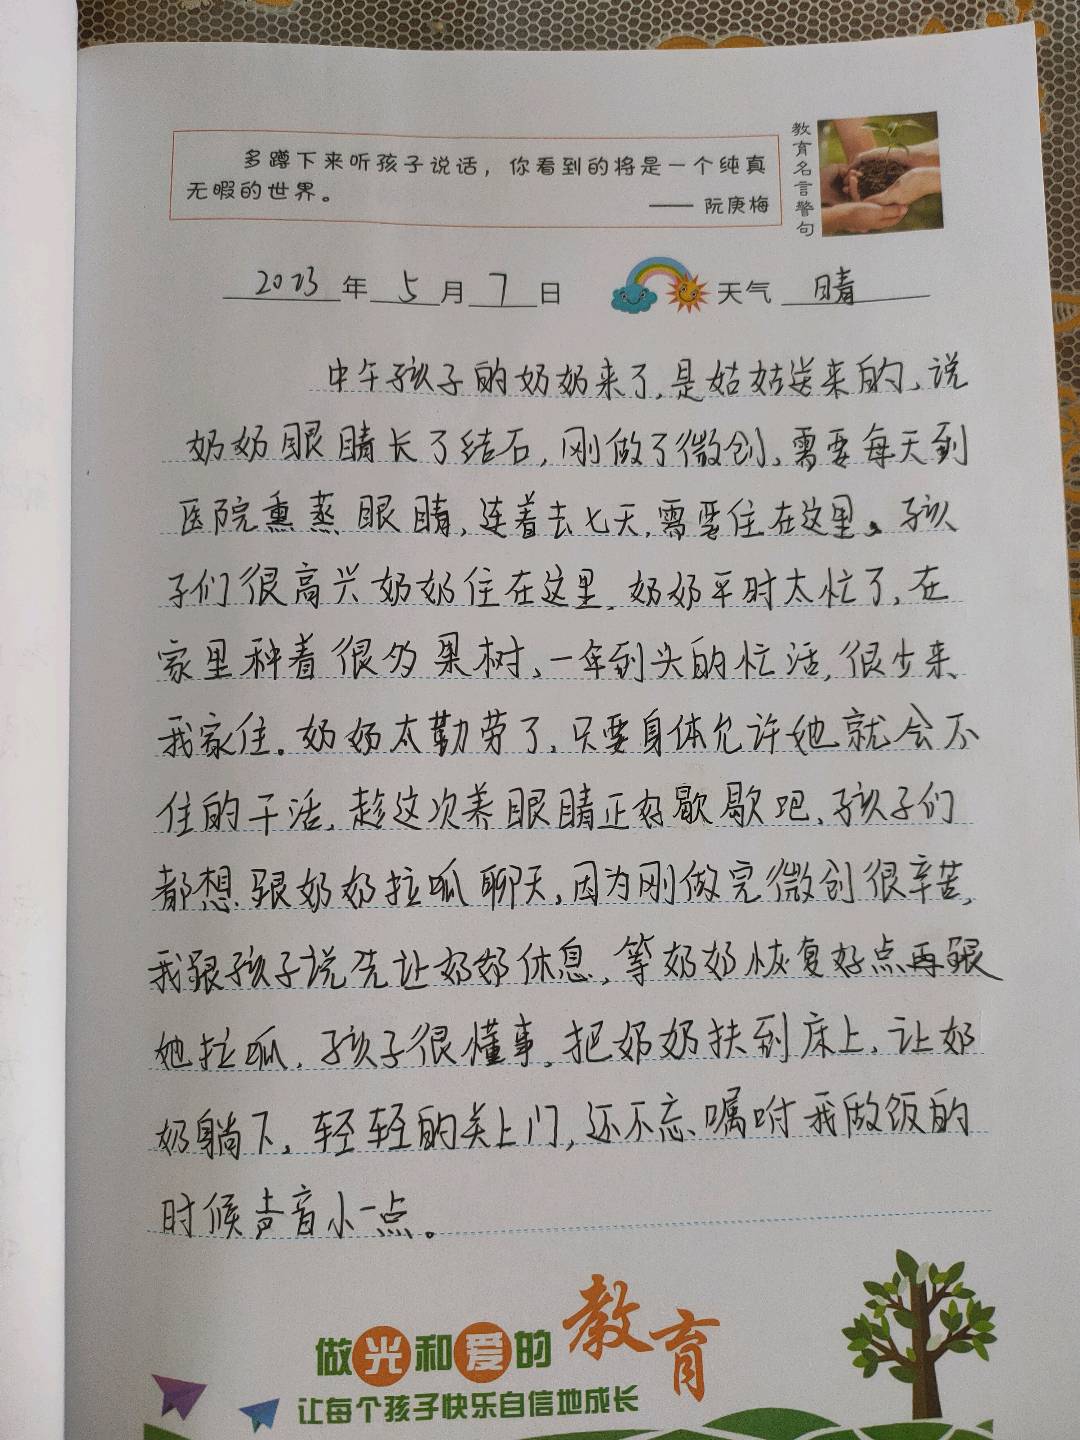 多蹲下来听孩子说话，你看到的将是一个纯真
无暇的世界。
—— 阮庚梅
教育名言警句
2023年5月7日 天气 晴
中午孩子的奶奶来了,是姑姑送来的,说
奶奶眼睛长了结石,刚做了微创,需要每天到
医院熏蒸眼睛,连着去七天,需要住在这里。孩
子们很高兴奶奶住在这里,奶奶平时太忙了,在
家里种着很多果树、一年到头的忙活,很少来
我家住。奶奶太勤劳了,只要身体允许她就会不
住的干活,趁这次养眼睛正好歇歇吧,孩子们
都想跟奶奶拉呱聊天,因为刚做完微创很辛苦,
我跟孩子说先让奶奶休息,等奶奶恢复好点再跟
她拉呱,孩子很懂事,把奶奶扶到床上,让奶
奶躺下,轻轻的关上门,还不忘嘱咐我做饭的
时候声音小一点。
做光和爱的教育
让每个孩子快乐自信地成长